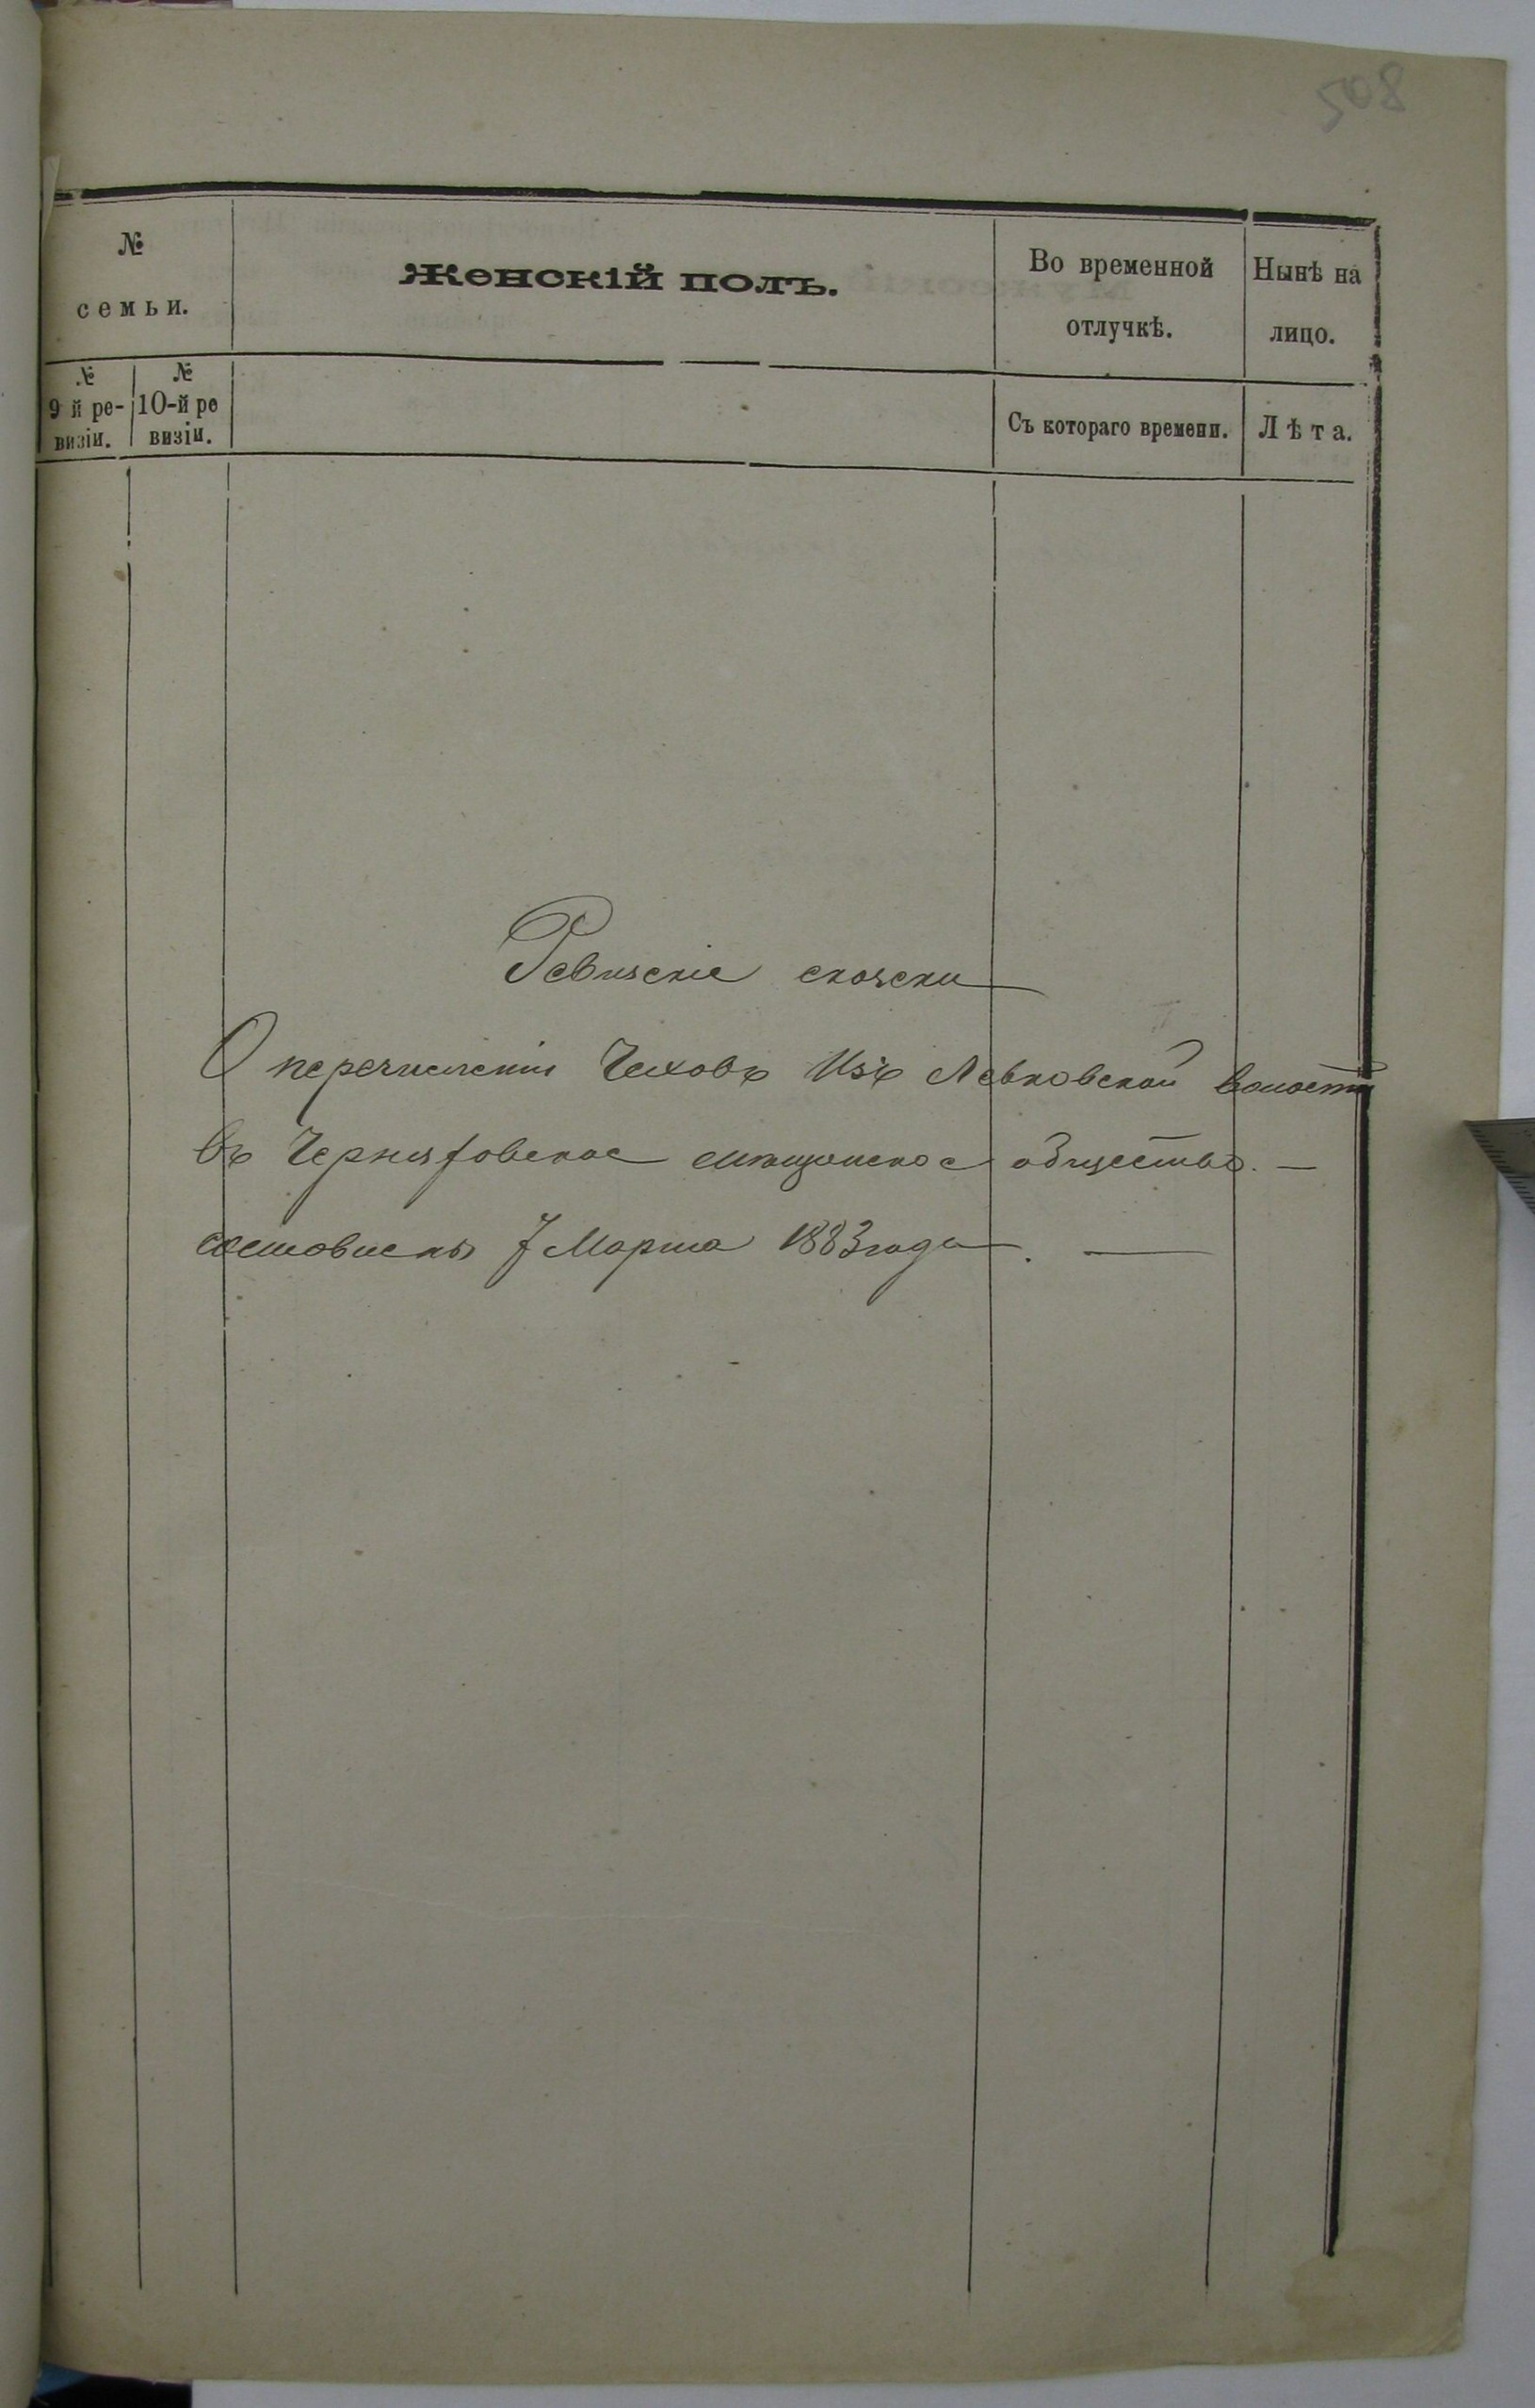 508
№ семьи.
Женскій полъ.
Во временной отлучкѣ.
Нынѣ на лицо.
№ 9 й ревизіи.
№ 10-й ре визіи.
Съ котораго времени.
Лѣта.
Ревизскіе сказски
О перечисленіи Чеховъ Изъ Левковской волости
въ Черняховское мѣщанское общество. —
составлены 7 Марта 1883 года. —